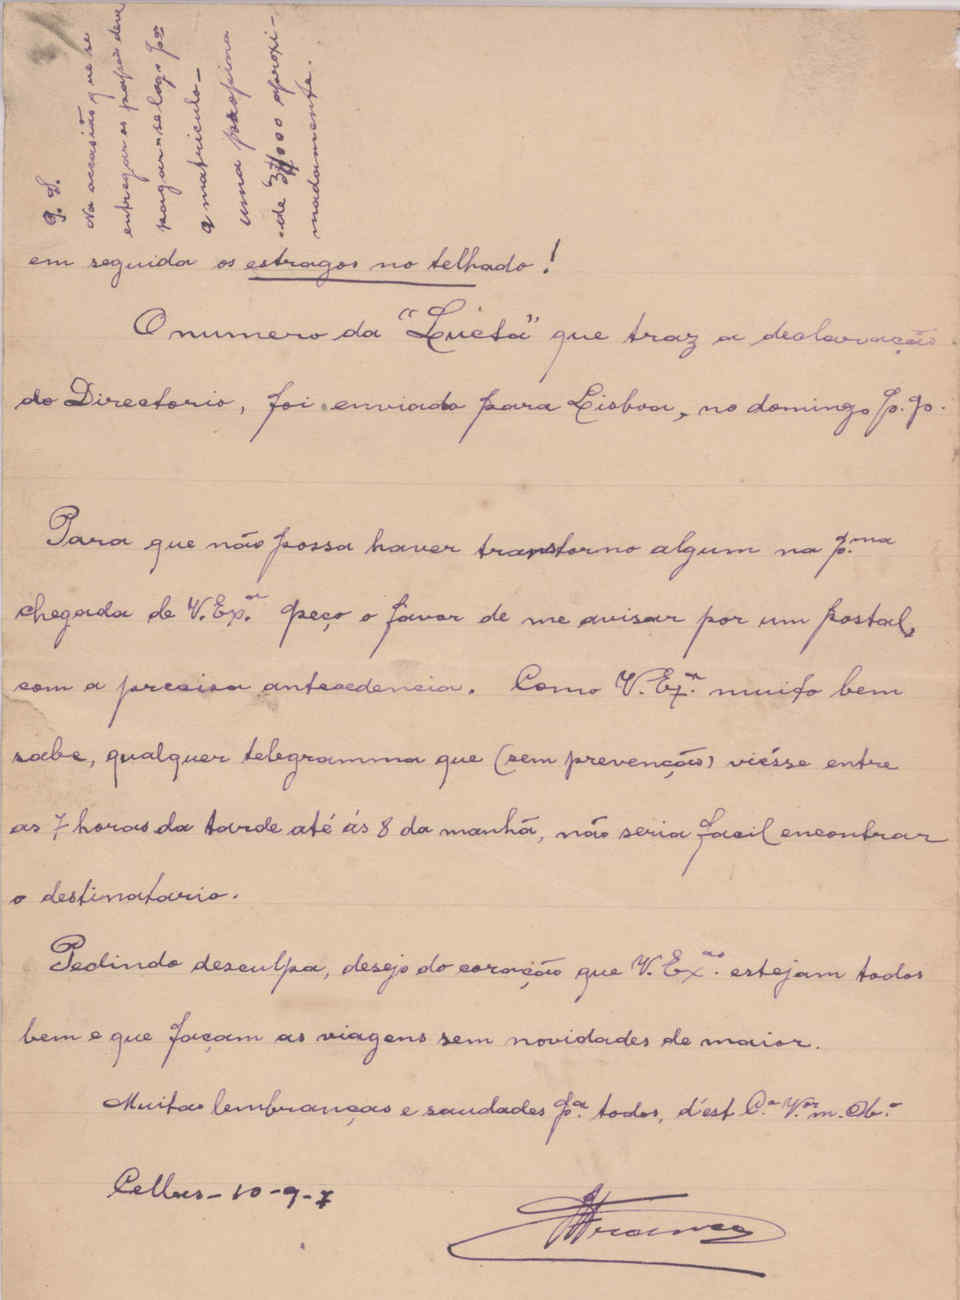 P. S.
Na occasião que se
entregar os papeis deve
pagar-se logo p.a
a matricula –
uma propina
de 3$000 aproxi-
madamente.
em seguida os estragos no telhado!
O numero da "Lucta" que traz a declaração
do Directorio, foi enviado para Lisboa, no domingo p. p.
Para que não possa haver transtorno algum na p.ma
chegada de V. Ex.a peço o favor de me avisar por um postal,
com a precisa antecedencia. Como V. Ex.a muito bem
sabe, qualquer telegramma que (sem prevenção) viésse entre
as 7 horas da tarde até ás 8 da manhã, não seria facil encontrar
o destinatario.
Pedindo desculpa, desejo do coração que V. Ex.as estejam todos
bem e que façam as viagens sem novidades de maior.
Muitas lembranças e saudades p.a todos, d'est C.o V.or m. Ob.o
Cellas – 10 – 9 – 7